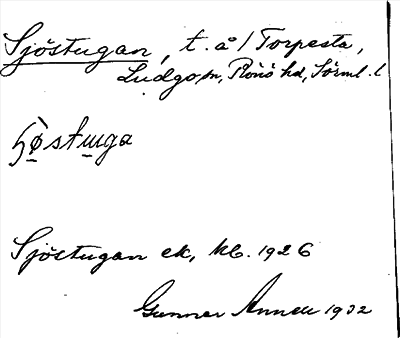 Sjöstugan, t. å / Torpesta,
Ludgo sn, Rönö hd, Sörml. l
ɧö̀stuga
Sjöstugan ek, kb. 1926
Gunnar Annell 1932